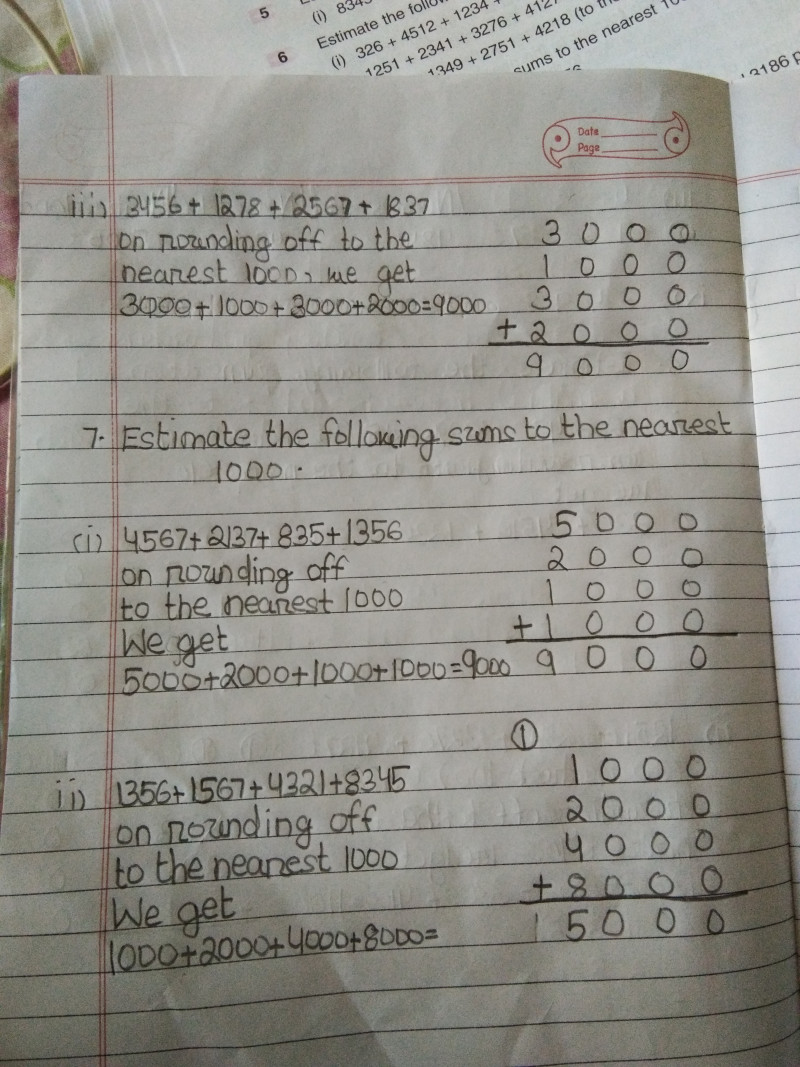 5
(i) 834
6
Estimate the follow
(i) 326 + 4512 + 1234 +
1251 + 2341 + 3276 + 412
1349 + 2751 + 4218 (to th
sums to the nearest 10
3186 p
Date
Page
iii) 3456 + 1278 + 2567 + 1837
on rounding off to the
nearest 1000, we get
3000 + 1000 + 3000 + 2000 = 9000
3 0 0 0
1 0 0 0
3 0 0 0
+ 2 0 0 0
9 0 0 0
7. Estimate the following sums to the nearest
1000.
(i) 4567 + 2137 + 835 + 1356
on rounding off
to the nearest 1000
We get
5000 + 2000 + 1000 + 1000 = 9000
5 0 0 0
2 0 0 0
1 0 0 0
+ 1 0 0 0
9 0 0 0
ii) 1356 + 1567 + 4321 + 8345
on rounding off
to the nearest 1000
We get
1000 + 2000 + 4000 + 8000 =
①
1 0 0 0
2 0 0 0
4 0 0 0
+ 8 0 0 0
1 5 0 0 0